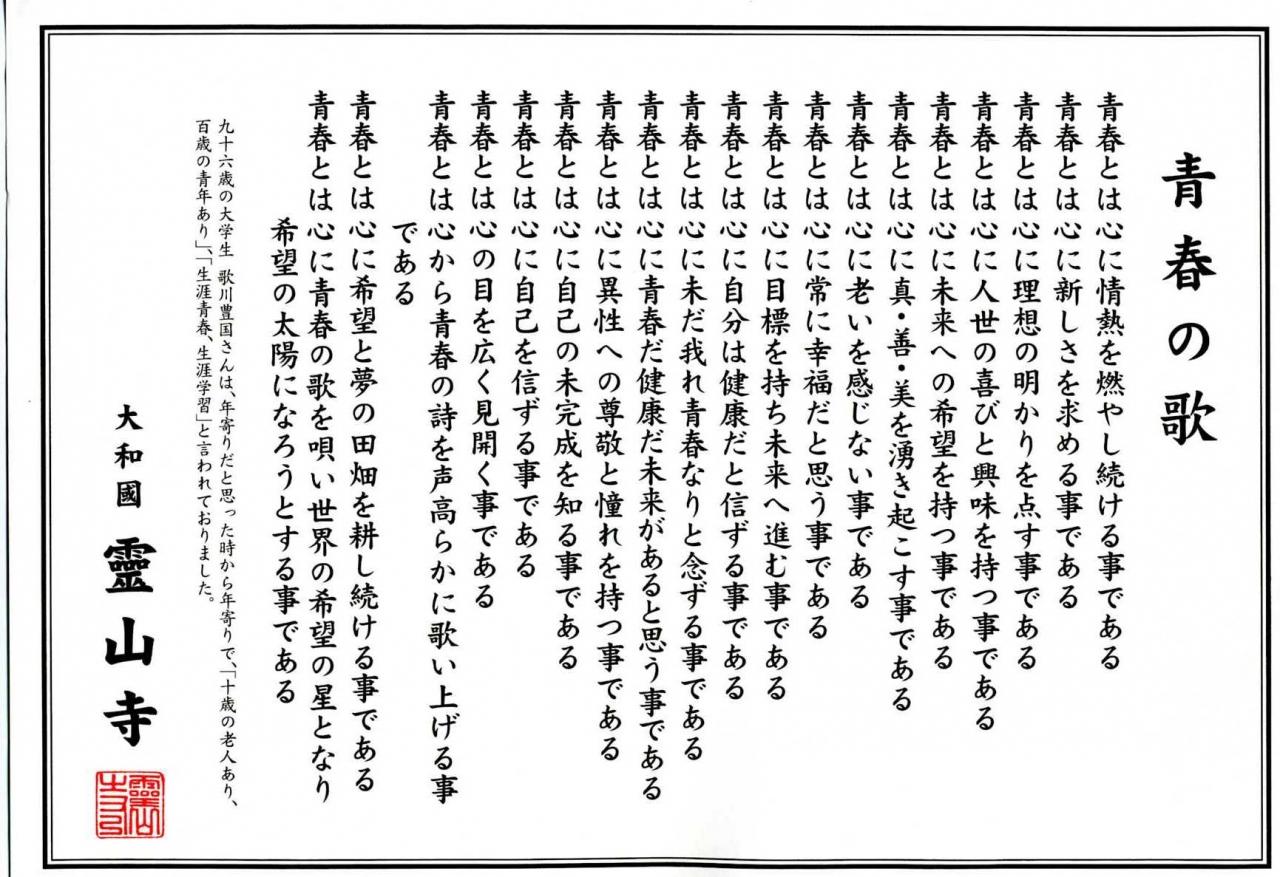 青春の歌
青春とは心に情熱を燃やし続ける事である
青春とは心に新しさを求める事である
青春とは心に理想の明かりを点す事である
青春とは心に人世の喜びと興味を持つ事である
青春とは心に未来への希望を持つ事である
青春とは心に真・善・美を湧き起こす事である
青春とは心に老いを感じない事である
青春とは心に常に幸福だと思う事である
青春とは心に目標を持ち未来へ進む事である
青春とは心に自分は健康だと信ずる事である
青春とは心に未だ我れ青春なりと念ずる事である
青春とは心に青春だ健康だ未来があると思う事である
青春とは心に異性への尊敬と憧れを持つ事である
青春とは心に自己の未完成を知る事である
青春とは心に自己を信ずる事である
青春とは心の目を広く見開く事である
青春とは心から青春の詩を声高らかに歌い上げる事
である
青春とは心に希望と夢の田畑を耕し続ける事である
青春とは心に青春の歌を唄い世界の希望の星となり
希望の太陽になろうとする事である
九十六歳の大学生 歌川豊国さんは、年寄りだと思った時から年寄りで、「十歳の老人あり、
百歳の青年あり」、「生涯青春、生涯学習」と言われておりました。
大和國 靈山寺